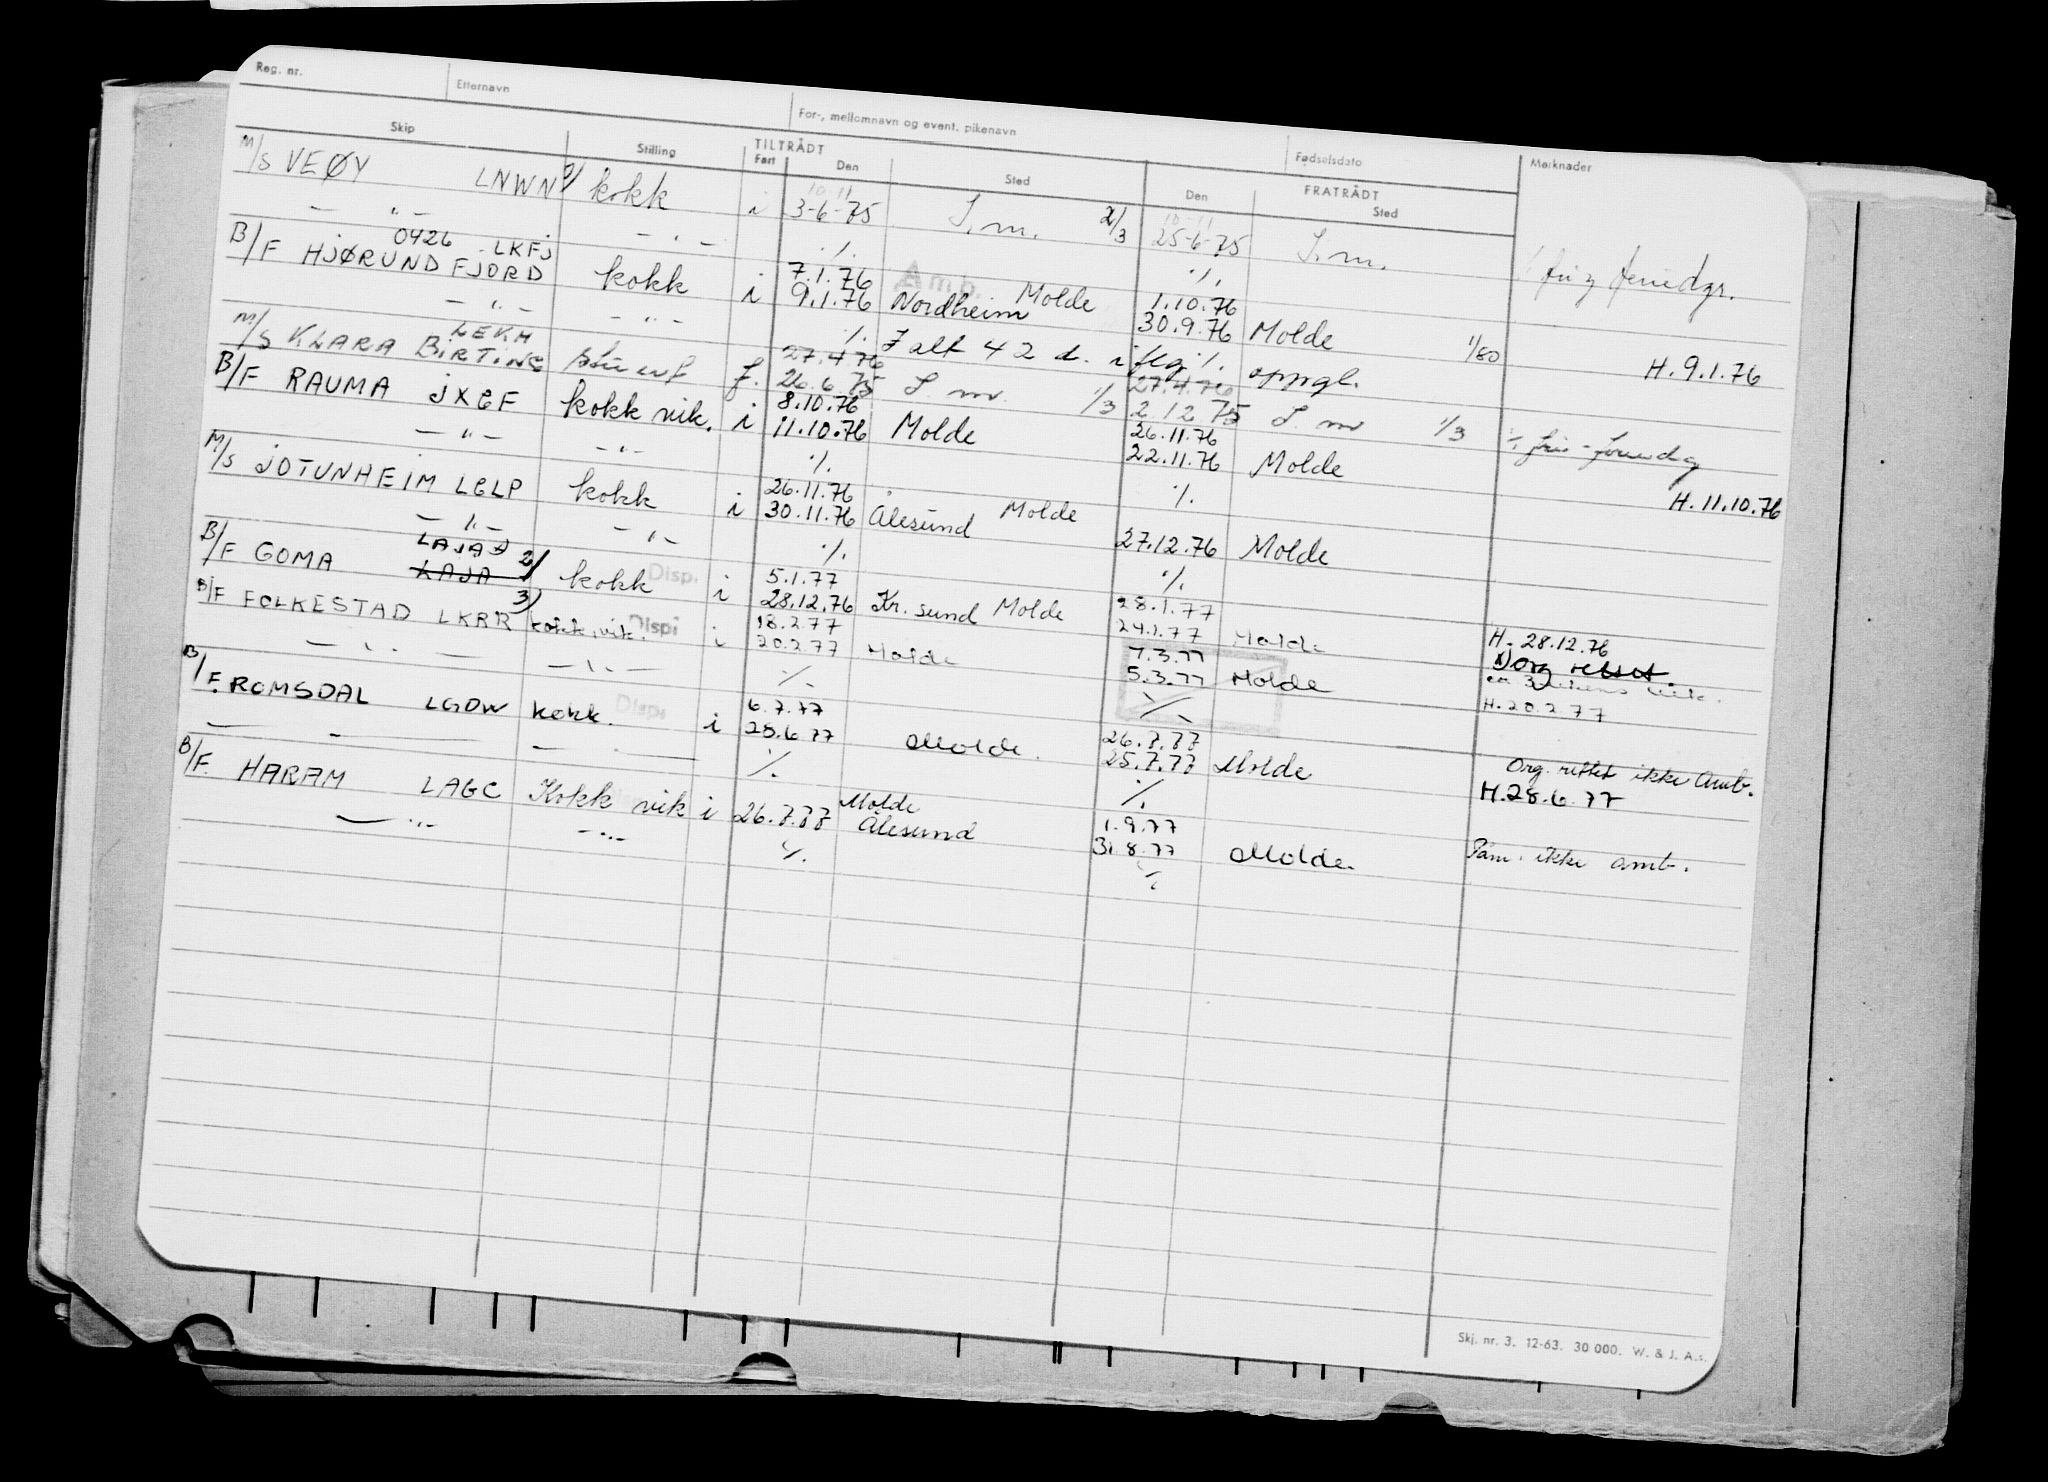 Reg. nr. Etternavn For-, mellomnavn og event. pikenavn Fødselsdato Merknader
Skip Stilling TILTRÅDT FRATRÅDT
Fart Den Sted Den Sted
M/S VEØY LNWN kokk i 3-6-75 S.m. 2/3 25-6-75 S.m.
— " — — " — ·/. ·/.
B/F HJØRUNDFJORD 0426 LKFJ kokk i 7.1.76 Amb. Molde 1.10.76
9.1.76 Nordheim 30.9.76 Molde 1/80 H. 9.1.76
— " — — " — ·/. I alt 42 d. i ·/. oppgl.
M/S KLARA BIRTING LEKH f. 27.4.76 27.4.76
26.6.75 S. m. 1/3 2.12.75 S. m 1/3
B/F RAUMA JXGF kokk vik. i 8.10.76 26.11.76
11.10.76 Molde 22.11.76 Molde H. 11.10.76
— " — — " — ·/. ·/.
M/S JOTUNHEIM LGLP kokk i 26.11.76 Molde
30.11.76 Ålesund 27.12.76 Molde
— " — — " — ·/. ·/.
B/F GOMA LAJA 2/ kokk Disp. i 5.1.77 28.1.77
28.12.76 Kr. sund Molde 24.1.77 Molde H. 28.12.76
B/F FOLKESTAD LKRR 3) kokk vik. Disp i 18.2.77 7.3.77
20.2.77 Molde 5.3.77 Molde H. 20.2.77
— " — — " — ·/. ·/.
B/F ROMSDAL LGDW kokk. Disp i 6.7.77 26.7.77 Org. rettet ikke Amb.
28.6.77 Molde. 25.7.77 Molde H. 28.6.77
— " — — " — ·/. ·/.
B/F. HARAM LAGC Kokk vik i 26.7.77 Molde 1.9.77
Ålesund 31.8.77 Molde. Påm. ikke amb.
— " — — " — ·/. ·/.
Skj. nr. 3. 12-63. 30 000. W. & J. A.s.